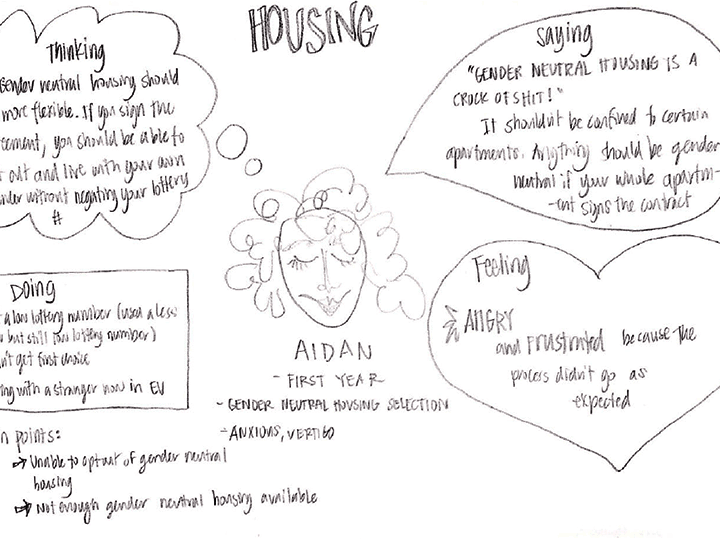 HOUSING
Thinking
Gender neutral housing should
more flexible. If you sign the
cement, you should be able to
out and live with your own
nder without negating your lottery
#
saying
"GENDER NEUTRAL HOUSING IS A
CROCK OF SHIT!"
It shouldn't be confined to certain
apartments. Anything should be gender
neutral if your whole apartm-
-ent signs the contract
Doing
a low lottery number (used a less
but still low lottery number)
n't get first choice
ing with a stranger now in EV
AIDAN
- FIRST YEAR
- GENDER NEUTRAL HOUSING SELECTION
- ANXIOUS, VERTIGO
Feeling
ANGRY
and Frustrated because the
process didn't go as
expected
n points:
→ Unable to opt out of gender neutral
housing
→ Not enough gender neutral housing available